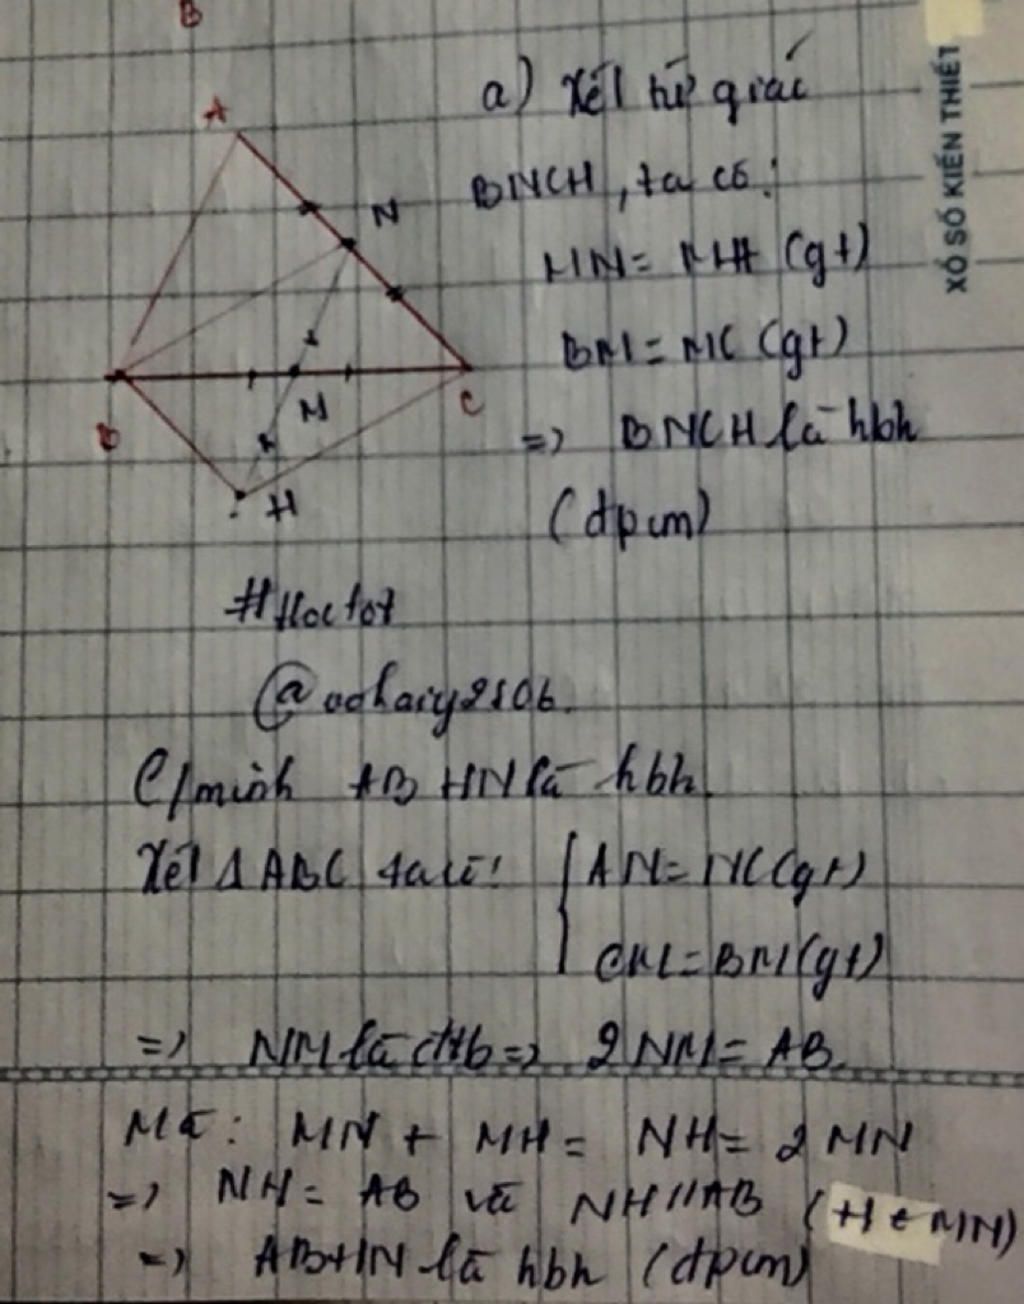 B
A
N
M
B
C
H
a) Xét tứ giác
BNCH, ta có:
MN = MH (gt)
BM = MC (gt)
=> BNCH là hbh
(đpcm)
XỔ SỐ KIẾN THIẾT
#Hoctot
C/minh ABHN là hbh.
Xét Δ ABC ta có:
AN = NC (gt)
CM = BM (gt)
=> NM là đtb => 2 NM = AB.
Mà: MN + MH = NH = 2 MN
=> NH = AB và NH // AB (H ∈ MN)
=> ABHN là hbh (đpcm)